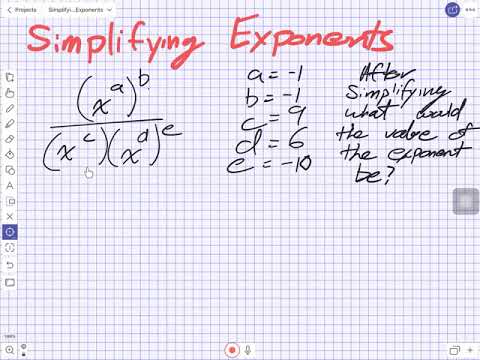 Projects Simplifyi...Exponents
Simplifying Exponents
(x^a)^b
(x^c)(x^d)^e
a = -1
b = -1
c = 9
d = 6
e = -10
After
Simplifying
what would
the value of
the exponent
be?